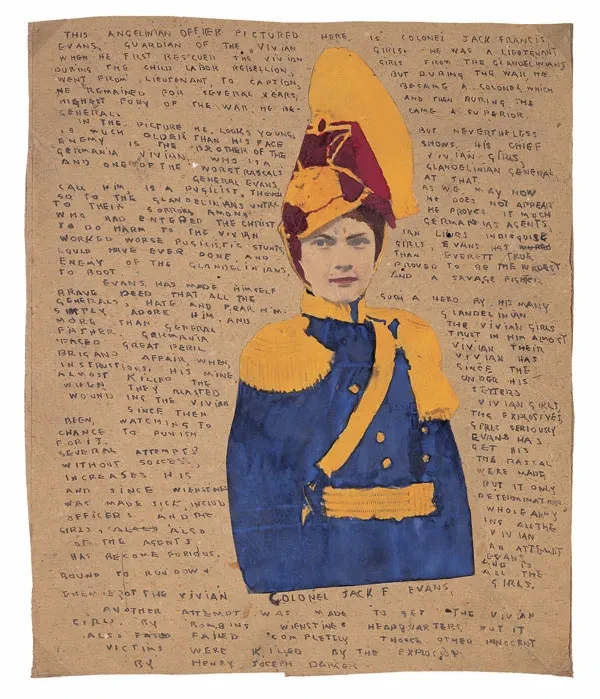 THIS ANGELINIAN OFFICER PICTURED HERE, IS COLONEL JACK FRANCIS,
EVANS, GUARDIAN OF THE VIVIAN GIRLS. HE WAS A LIEUTENANT
WHEN HE FIRST RESCUED THE VIVIAN GIRLS FROM THE GLANDELINIANS
DURING THE CHILD LABOR REBELLION, BUT DURING THE WAR HE
WENT FROM LIEUTENANT, TO CAPTION, BECAME A COLONEL WHICH
HE REMAINED FOR SEVERAL YEARS, AND THEN DURING THE
HIGHEST FURY OF THE WAR, HE BE- CAME A SUPERIOR
GENERAL.
IN THE PICTURE HE, LOOKS YOUNG, BUT NEVERTHELESS
IS MUCH OLDER THAN HIS FACE SHOWS, HIS CHIEF
ENEMY IS THE BROTHER OF THE VIVIAN GIRLS,
GERMANIA VIVIAN, WHO IS A GLANDELINIAN GENERAL
AND ONE OF THE WORST RASCALS AT THAT.
GENERAL EVANS, AS WE MAY NOW
CALL HIM, IS A PUGILIST, THOUGH HE DOES NOT APPEAR
SO TO THE GLANDELINIANS UNTIL HE PROVES IT MUCH
TO THEIR SORROW, AMONG GERMANIAS AGENTS
WHO HAD ENTERED THE CHRIST IAN LINES INDISGUISE
TO DO HARM TO THE VIVIAN GIRLS, EVANS HAS
WORKED WORSE PUGILISTIC STUNTS, THAN EVERETT TRUE
COULD HAVE EVER DONE AND PROVED TO BE THE WORST
ENEMY OF THE GLANDELINIANS, AND A SAVAGE FIGHTER
TO BOOT.
EVANS HAS MADE HIMSELF SUCH A HERO BY HIS MANY
BRAVE DEED THAT ALL THE GLANDELINIAN
GENERALS, HATE AND FEAR HIM. THE VIVIAN GIRLS
SIMPLY ADORE HIM AND TRUST IN HIM ALMOST
MORE THAN GENERAL VIVIAN THEIR
FATHER GERMANIA VIVIAN HAS
FACED GREAT PERIL SINCE THE
BRIGAND AFFAIR, WHEN, UNDER HIS
INSTRUCTIONS, HIS MINE SETTERS
ALMOST KILLED THE VIVIAN GIRLS,
WHEN THEY BLASTED THE EXPLOSIVES,
WOUNDING THE VIVIAN GIRLS SERIOUSLY
SINCE THEN EVANS HAS
BEEN, WATCHING TO GET HIS
CHANCE TO PUNISH THE RASCAL
FOR IT.
SEVERAL ATTEMPTS WERE MADE
WITHOUT SUCCESS, BUT IT ONLY
INCREASES HIS DETERMINATION
AND SINCE WIENSTINES WHOLE ARMY
WAS MADE SICK, INCLUD ING ALL THE
OFFICERS AND THE VIVIAN
GIRLS, ALSO ALSO AN ATTEMPT
OF THE AGENTS, EVANS
HAS BECOME FURIOUS, AND IS
BOUND TO RUN DOWN ALL THE
ENEMIES OF THE VIVIAN GIRLS.
COLONEL JACK F EVANS.
ANOTHER ATTEMPT WAS MADE TO GET THE VIVIAN
GIRLS BY BOMBING WIENSTINES HEADQUARTERS BUT IT
ALSO FAILED COMPLETELY THOUGH OTHER INNOCENT
VICTIMS WERE KILLED BY THE EXPLOSION
BY HENRY JOSEPH DARGER